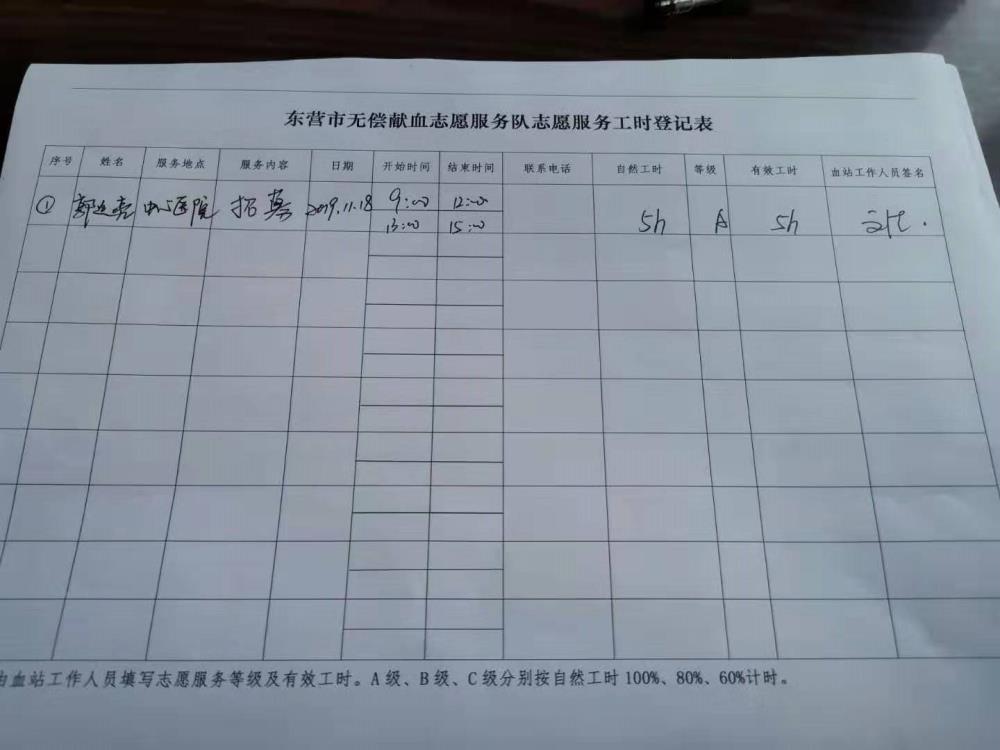 东营市无偿献血志愿服务队志愿服务工时登记表
序号 姓名 服务地点 服务内容 日期 开始时间 结束时间 联系电话 自然工时 等级 有效工时 血站工作人员签名
① 中心医院 招募 2019.11.18 9:00 12:00 5h A 5h
13:00 15:00
由血站工作人员填写志愿服务等级及有效工时。A级、B级、C级分别按自然工时100%、80%、60%计时。